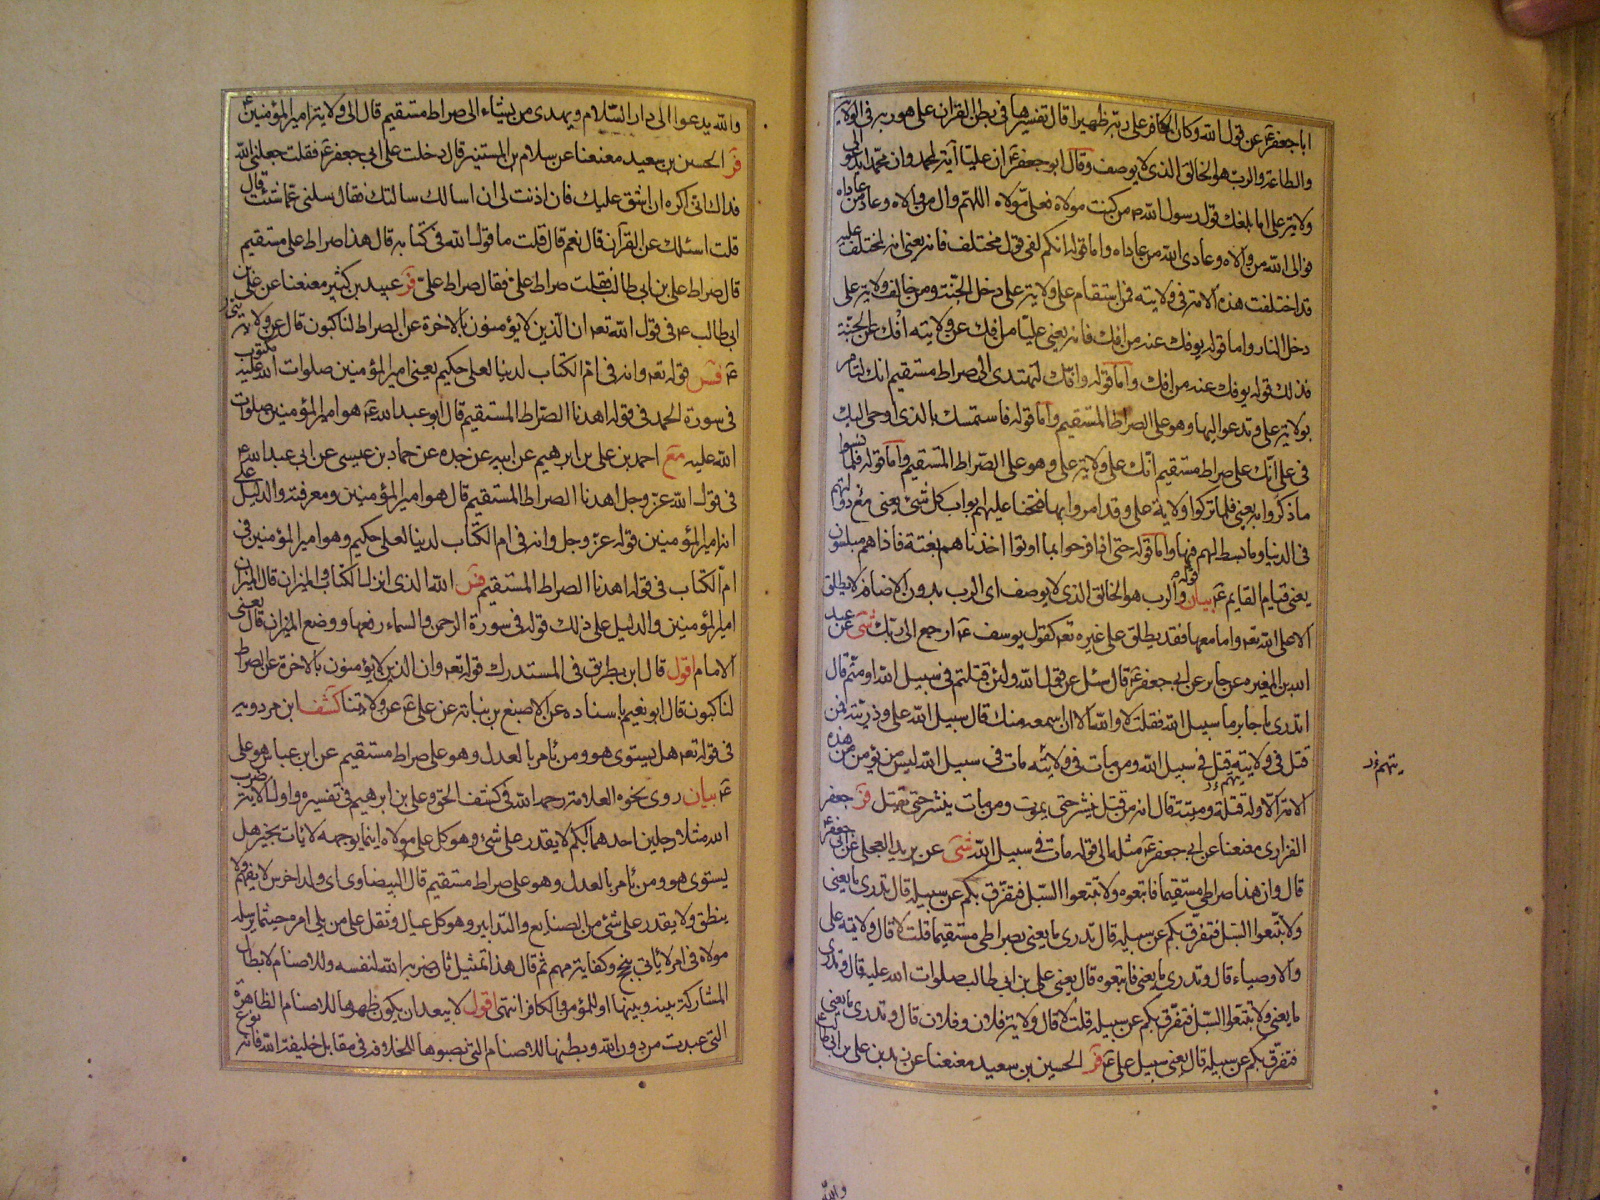 ابا جعفر ع عن قول الله وكان الكافر على ربه ظهيرا قال تفسيرها في بطن القران على هو ربه في الولاية
والطاعة والرب هو الخالق الذى لا يوصف وقال ابو جعفر ع ان عليا آية لمحمد وان محمدا يدعو الى
ولاية على اما بلغك قول رسول الله ص من كنت مولاه فعلى مولاه اللهم وال من والاه وعاد من عاداه
فوالى الله من والاه وعادى الله من عاداه واما قوله انكم لفي قول مختلف فانه يعنى انه لمختلف عليه
قد اختلفت هذه الامة في ولايته فمن استقام على ولاية على دخل الجنة ومن خالف ولاية على
دخل النار واما قوله يوفك عنه من افك فانه يعنى عليا من افك عن ولايته افك عن الجنة
فذلك قوله يوفك عنه من افك واما قوله وانك لتهتدى الى صراط مستقيم انك لتامر
بولاية على وتدعو اليها وهو على الصراط المستقيم واما قوله فاستمسك بالذى اوحى اليك
في على انك على صراط مستقيم انك على ولاية على وهو على الصراط المستقيم واما قوله فلما نسوا
ما ذكروا به يعنى فلما تركوا ولاية على وقد امروا بها فتحنا عليهم ابواب كل شئ يعنى مع دولتهم
في الدنيا وما بسط لهم فيها واما قوله حتى اذا فرحوا بما اوتوا اخذناهم بغتة فاذا هم مبلسون
يعنى قيام القايم ع بيان قوله والرب هو الخالق الذى لا يوصف اى الرب بدون الاضافة لا يطلق
الا على الله تعه واما معها فقد يطلق على غيره تعه كقول يوسف ع ارجع الى ربك شى عن عبد
الله بن المغيره عن جابر عن ابي جعفر ع قال سئل عن قول الله ولئن قتلتم في سبيل الله او متم قال
اتدرى يا جابر ما سبيل الله فقلت لا والله الا ان اسمعه منك قال سبيل الله على وذريته فمن
قتل في ولايته قتل في سبيل الله ومن مات في ولايته مات في سبيل الله ليس من يؤمن من هذه
الامة الا وله قتلة وميتة قال انه من قتل ينشر حتى يموت ومن مات ينشر حتى يقتل فر جعفر
الفزارى معنعنا عن ابي جعفر ع مثله الى قوله مات في سبيل الله شى عن بريد العجلى عن ابي جعفر ع
قال وان هذا صراطى مستقيما فاتبعوه ولا تتبعوا السبل فتفرق بكم عن سبيله قال تدرى ما يعنى
ولا تتبعوا السبل فتفرق بكم عن سبيله قال تدرى ما يعنى بصراطى مستقيما قلت لا قال ولاية على
والاوصياء قال وتدرى ما يعنى فاتبعوه قال يعنى على بن ابي طالب صلوات الله عليه قال وتدرى
ما يعنى ولا تتبعوا السبل فتفرق بكم عن سبيله قلت لا قال ولاية فلان وفلان قال وتدرى ما يعنى
فتفرق بكم عن سبيله قال يعنى سبيل على ع فر الحسين بن سعيد معنعنا عن زيد بن على بن ابي طالب ع
والله
والله يدعوا الى دار السلام ويهدى من يشاء الى صراط مستقيم قال الى ولاية امير المؤمنين ع
فر الحسين بن سعيد معنعنا عن سلام بن المستنير قال دخلت على ابي جعفر ع فقلت جعلنى الله
فداك انى اكره ان اشق عليك فان اذنت لى ان اسالك سالتك فقال سلنى عما شئت قال
قلت اسئلك عن القرآن قال نعم قال قلت ما قول الله في كتابه قال هذا صراط على مستقيم
قال صراط على بن ابي طالب فقلت صراط على ع فقال صراط على ع فر عبيد بن كثير معنعنا عن على بن
ابي طالب ع في قول الله تعه ان الذين لا يؤمنون بالاخرة عن الصراط لناكبون قال عن ولايتى
فس قوله تعه وانه في ام الكتاب لدينا لعلى حكيم يعنى امير المؤمنين صلوات الله عليه مكتوب
في سورة الحمد في قوله اهدنا الصراط المستقيم قال ابو عبد الله ع هو امير المؤمنين صلوات
الله عليه مع احمد بن على بن ابرهيم عن ابيه عن جده عن حماد بن عيسى عن ابي عبد الله ع
في قول الله عز وجل اهدنا الصراط المستقيم قال هو امير المؤمنين ومعرفته والدليل على
انه امير المؤمنين قوله عز وجل وانه في ام الكتاب لدينا لعلى حكيم وهو امير المؤمنين في
ام الكتاب في قوله اهدنا الصراط المستقيم فس الله الذى انزل الكتاب والميزان قال الميزان
امير المؤمنين والدليل على ذلك قوله في سورة الرحمن والسماء رفعها ووضع الميزان قال يعنى
الامام اقول قال ابن بطريق في المستدرك قوله تعه وان الذين لا يؤمنون بالاخرة عن الصراط
لناكبون قال ابو نعيم باسناده عن الاصبغ بن نباته عن على ع عن ولايتنا كشف ابن مردويه
في قوله تعه هل يستوى هو ومن يامر بالعدل وهو على صراط مستقيم عن ابن عباس هو على
ع بيان روى نحوه العلامة رحمه الله في كشف الحق وعلى بن ابرهيم في تفسيره واول الاية ضرب
الله مثلا رجلين احدهما ابكم لا يقدر على شئ وهو كل على مولاه اينما يوجهه لا يات بخير هل
يستوى هو ومن يامر بالعدل وهو على صراط مستقيم قال البيضاوى اى ولد اخرس لا يفهم ولا
ينطق ولا يقدر على شئ من الصنايع والتدابير وهو كل عيال وثقل على من يلى امره حيثما يرسله
مولاه في امر لا يات بنجح وكفاية مهم ثم قال هذا تمثيل ثان ضربه الله لنفسه وللاصنام لابطال
المشاركة بينه وبينها او للمؤمن والكافر انتهى اقول لا يبعد ان يكون ظهرها للاصنام الظاهرة
التى عبدت من دون الله وبطنها للاصنام التى نصبوها للخلافة في مقابل خليفة الله فانه نوع